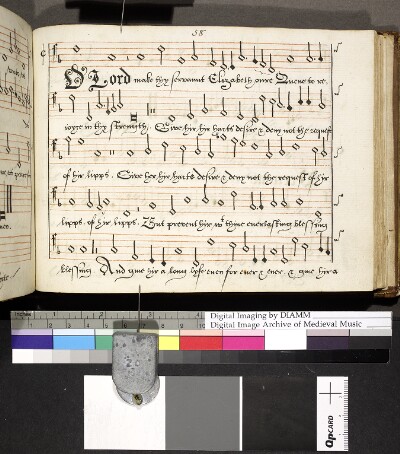 58
O Lord make thy servaunt Elizabeth oure Queene to re-
ioyce in thy strength. Give hir hir harts desire & deny not the request
of hir lipps. Give her hir harts desire & deny not the request of hir
lipps. of hir lipps. But prevent hir wt thine everlasting blessing
blessing. And give hir a long lyfe even for ever & ever. & give hir a
Digital Imaging by DIAMM
Digital Image Archive of Medieval Music
QPCARD
20